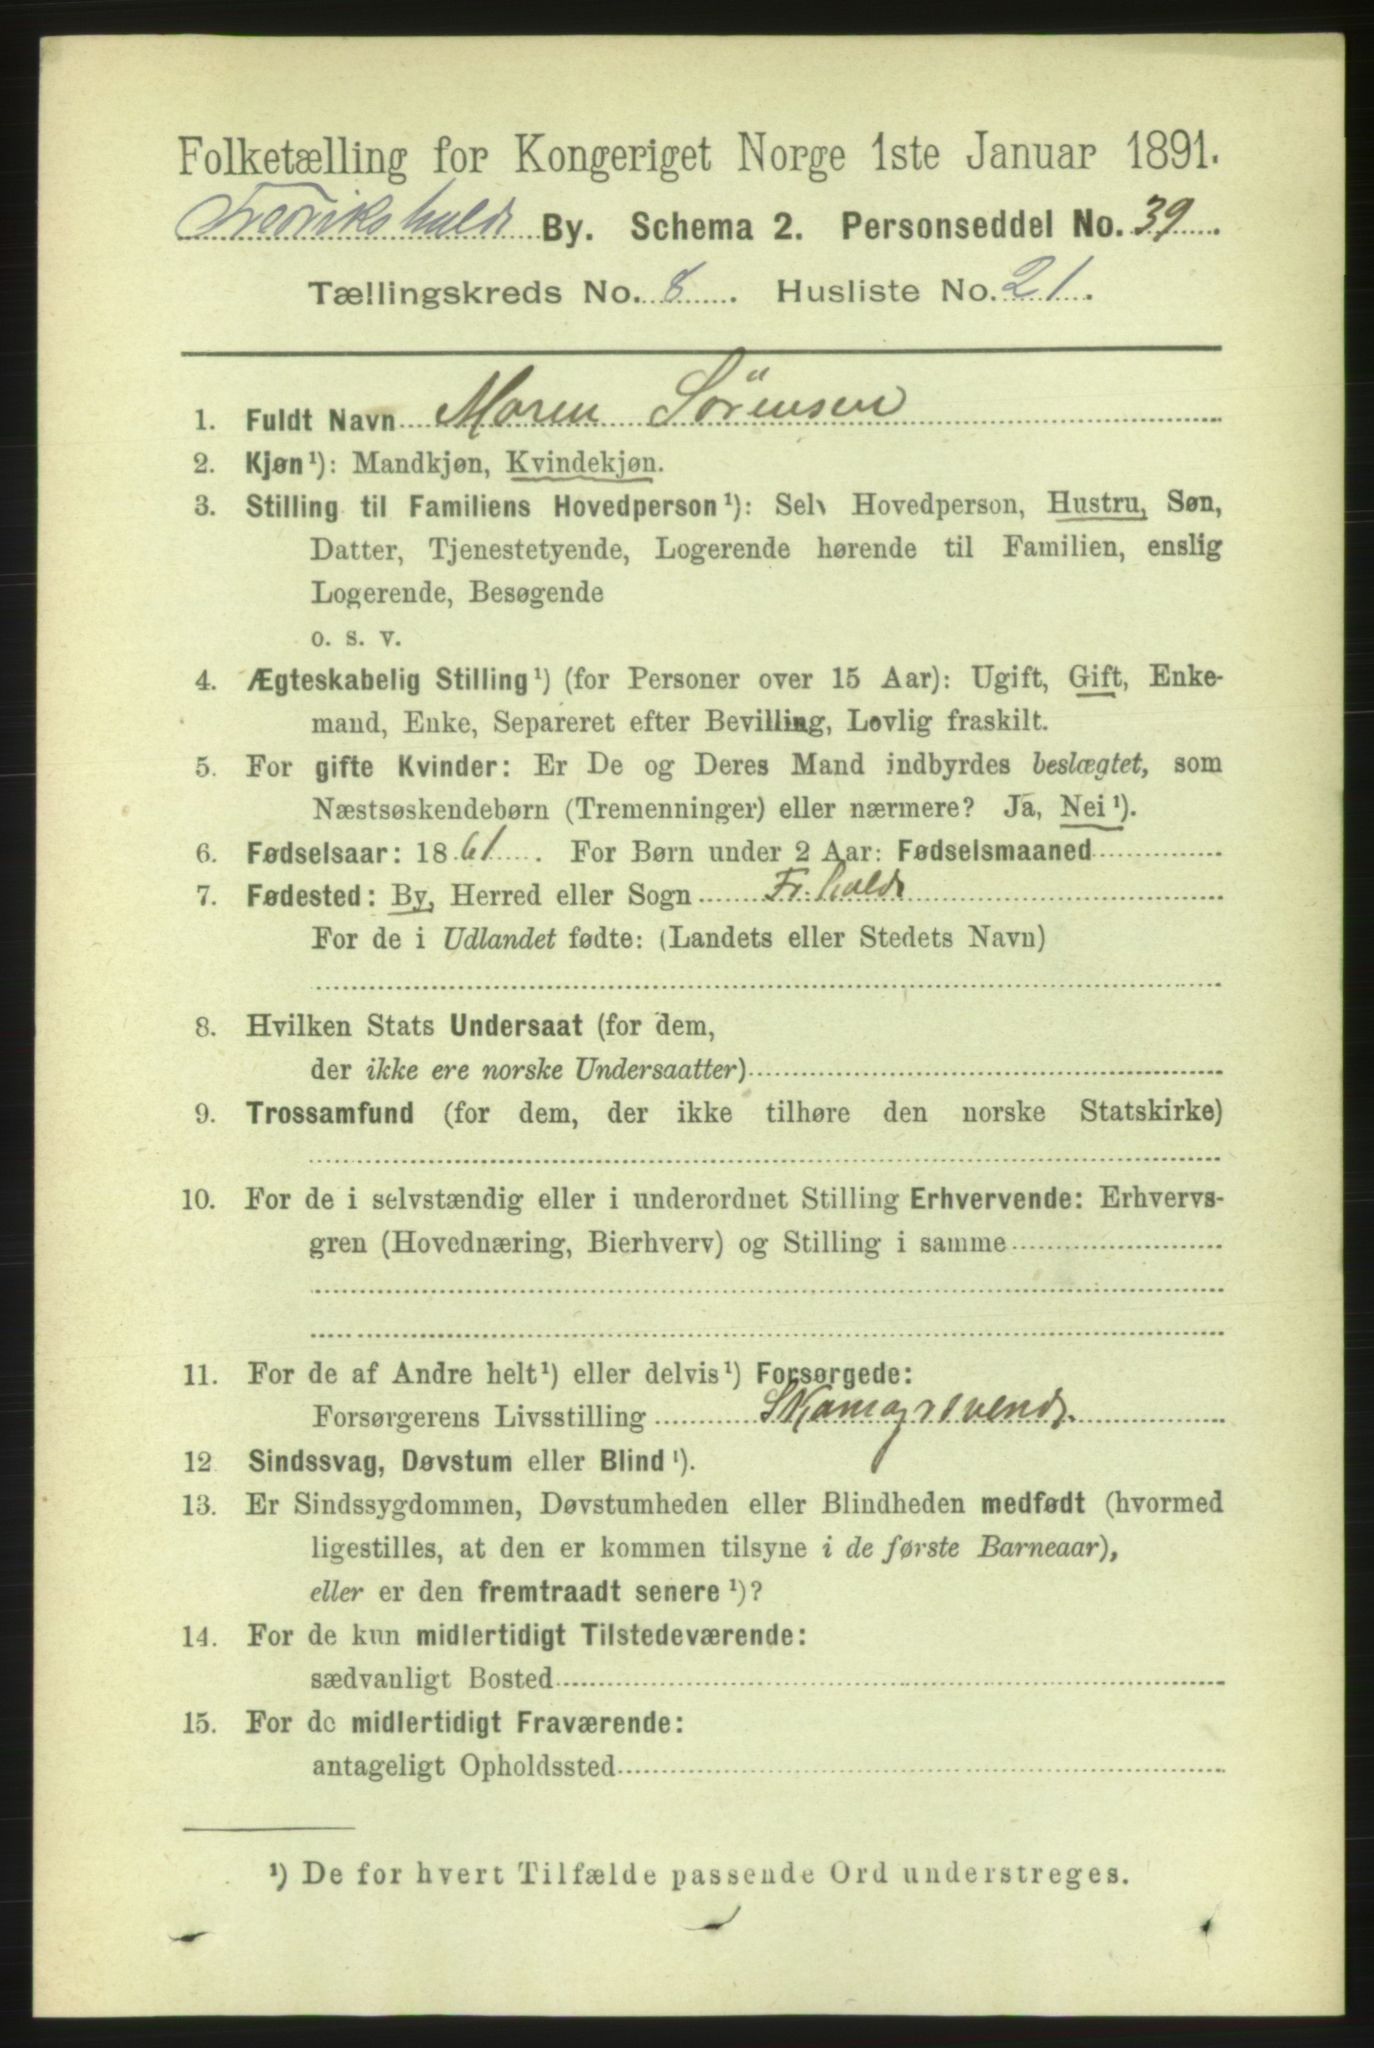 Folketælling for Kongeriget Norge 1ste Januar 1891.
Fredrikshald By. Schema 2. Personseddel No. 39
Tællingskreds No. 8. Husliste No. 21.
1. Fuldt Navn Maren Sörensen
2. Kjøn¹): Mandkjøn, Kvindekjøn.
3. Stilling til Familiens Hovedperson¹): Selv Hovedperson, Hustru, Søn,
Datter, Tjenestetyende, Logerende hørende til Familien, enslig
Logerende, Besøgende
o. s. v.
4. Ægteskabelig Stilling¹) (for Personer over 15 Aar): Ugift, Gift, Enke-
mand, Enke, Separeret efter Bevilling, Lovlig fraskilt.
5. For gifte Kvinder: Er De og Deres Mand indbyrdes beslægtet, som
Næstsøskendebørn (Tremenninger) eller nærmere? Ja, Nei¹).
6. Fødselsaar: 1861. For Børn under 2 Aar: Fødselsmaaned
7. Fødested: By, Herred eller Sogn Fr.hald
For de i Udlandet fødte: (Landets eller Stedets Navn)
8. Hvilken Stats Undersaat (for dem,
der ikke ere norske Undersaatter)
9. Trossamfund (for dem, der ikke tilhøre den norske Statskirke)
10. For de i selvstændig eller i underordnet Stilling Erhvervende: Erhvervs-
gren (Hovednæring, Bierhverv) og Stilling i samme
11. For de af Andre helt¹) eller delvis¹) Forsørgede:
Forsørgerens Livsstilling Skomagrsvend.
12 Sindssvag, Døvstum eller Blind¹).
13. Er Sindssygdommen, Døvstumheden eller Blindheden medfødt (hvormed
ligestilles, at den er kommen tilsyne i de første Barneaar),
eller er den fremtraadt senere¹)?
14. For de kun midlertidigt Tilstedeværende:
sædvanligt Bosted
15. For de midlertidigt Fraværende:
antageligt Opholdssted
¹) De for hvert Tilfælde passende Ord understreges.